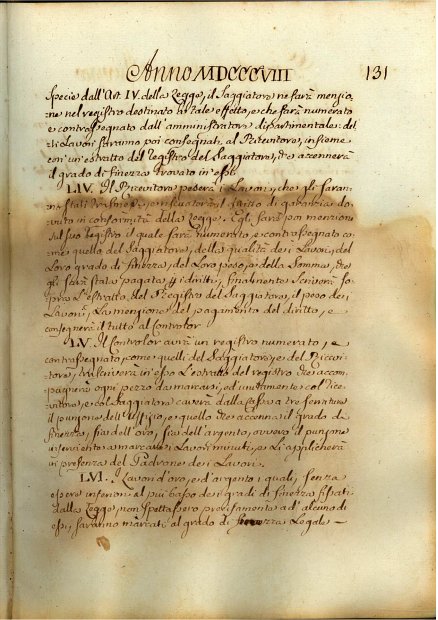 Anno MDCCCVIII 131
Specie dall'Art. IV. della Legge, il Saggiatore ne farà menzio-
ne nel registro destinato a tale effetto, e che sarà numerato
e contrassegnato dall'amministratore dipartimentale: det-
ti Lavori saranno poi consegnati al Ricevitore, insieme
con un estratto del Registro del Saggiatore, che accennerà
il grado di finezza trovato in essi.
LIV. Il Ricevitore peserà i Lavori, che gli saran-
no stati trasmessi, e il dazio di garanzia do-
vuto in conformità della Legge. Egli farà poi menzione
sul suo Registro il quale sarà numerato, e contrassegnato co-
me quello del Saggiatore, della qualità dei Lavori, del
Loro grado di finezza, del Loro peso, e della Somma, che
gli sarà stata pagata i diritti, finalmente scriverà so-
pra L'estratto del Registro del Saggiatore, il peso dei
Lavori, La menzione del pagamento del diritto, e
consegnerà il tutto al Controlor
LV. Il Controlor avrà un registro numerato, e
contrassegnato come quelli del Saggiatore, e del Ricevi-
tore, trascriverà in esso L'estratto del registro che accom-
pagnerà ogni pezzo da marcarsi, ed unitamente col Rice-
vitore, e col Saggiatore caverà dalla Cassa a tre serrature
il punzone dell'Uffizio, e quello che accenna il grado di
finezza, sia dell'oro, sia dell'argento, ovvero il punzone
inserviente a marcare i Lavori minuti, e Li applicherà
in presenza del Padrone dei Lavori.
LVI. I Lavori d'oro, e d'argento i quali, senza
essere inferiori al più basso dei gradi di finezza fissati
dalla Legge, non spettassero precisamente ad alcuno di
essi, saranno marcati al grado di finezza Legale